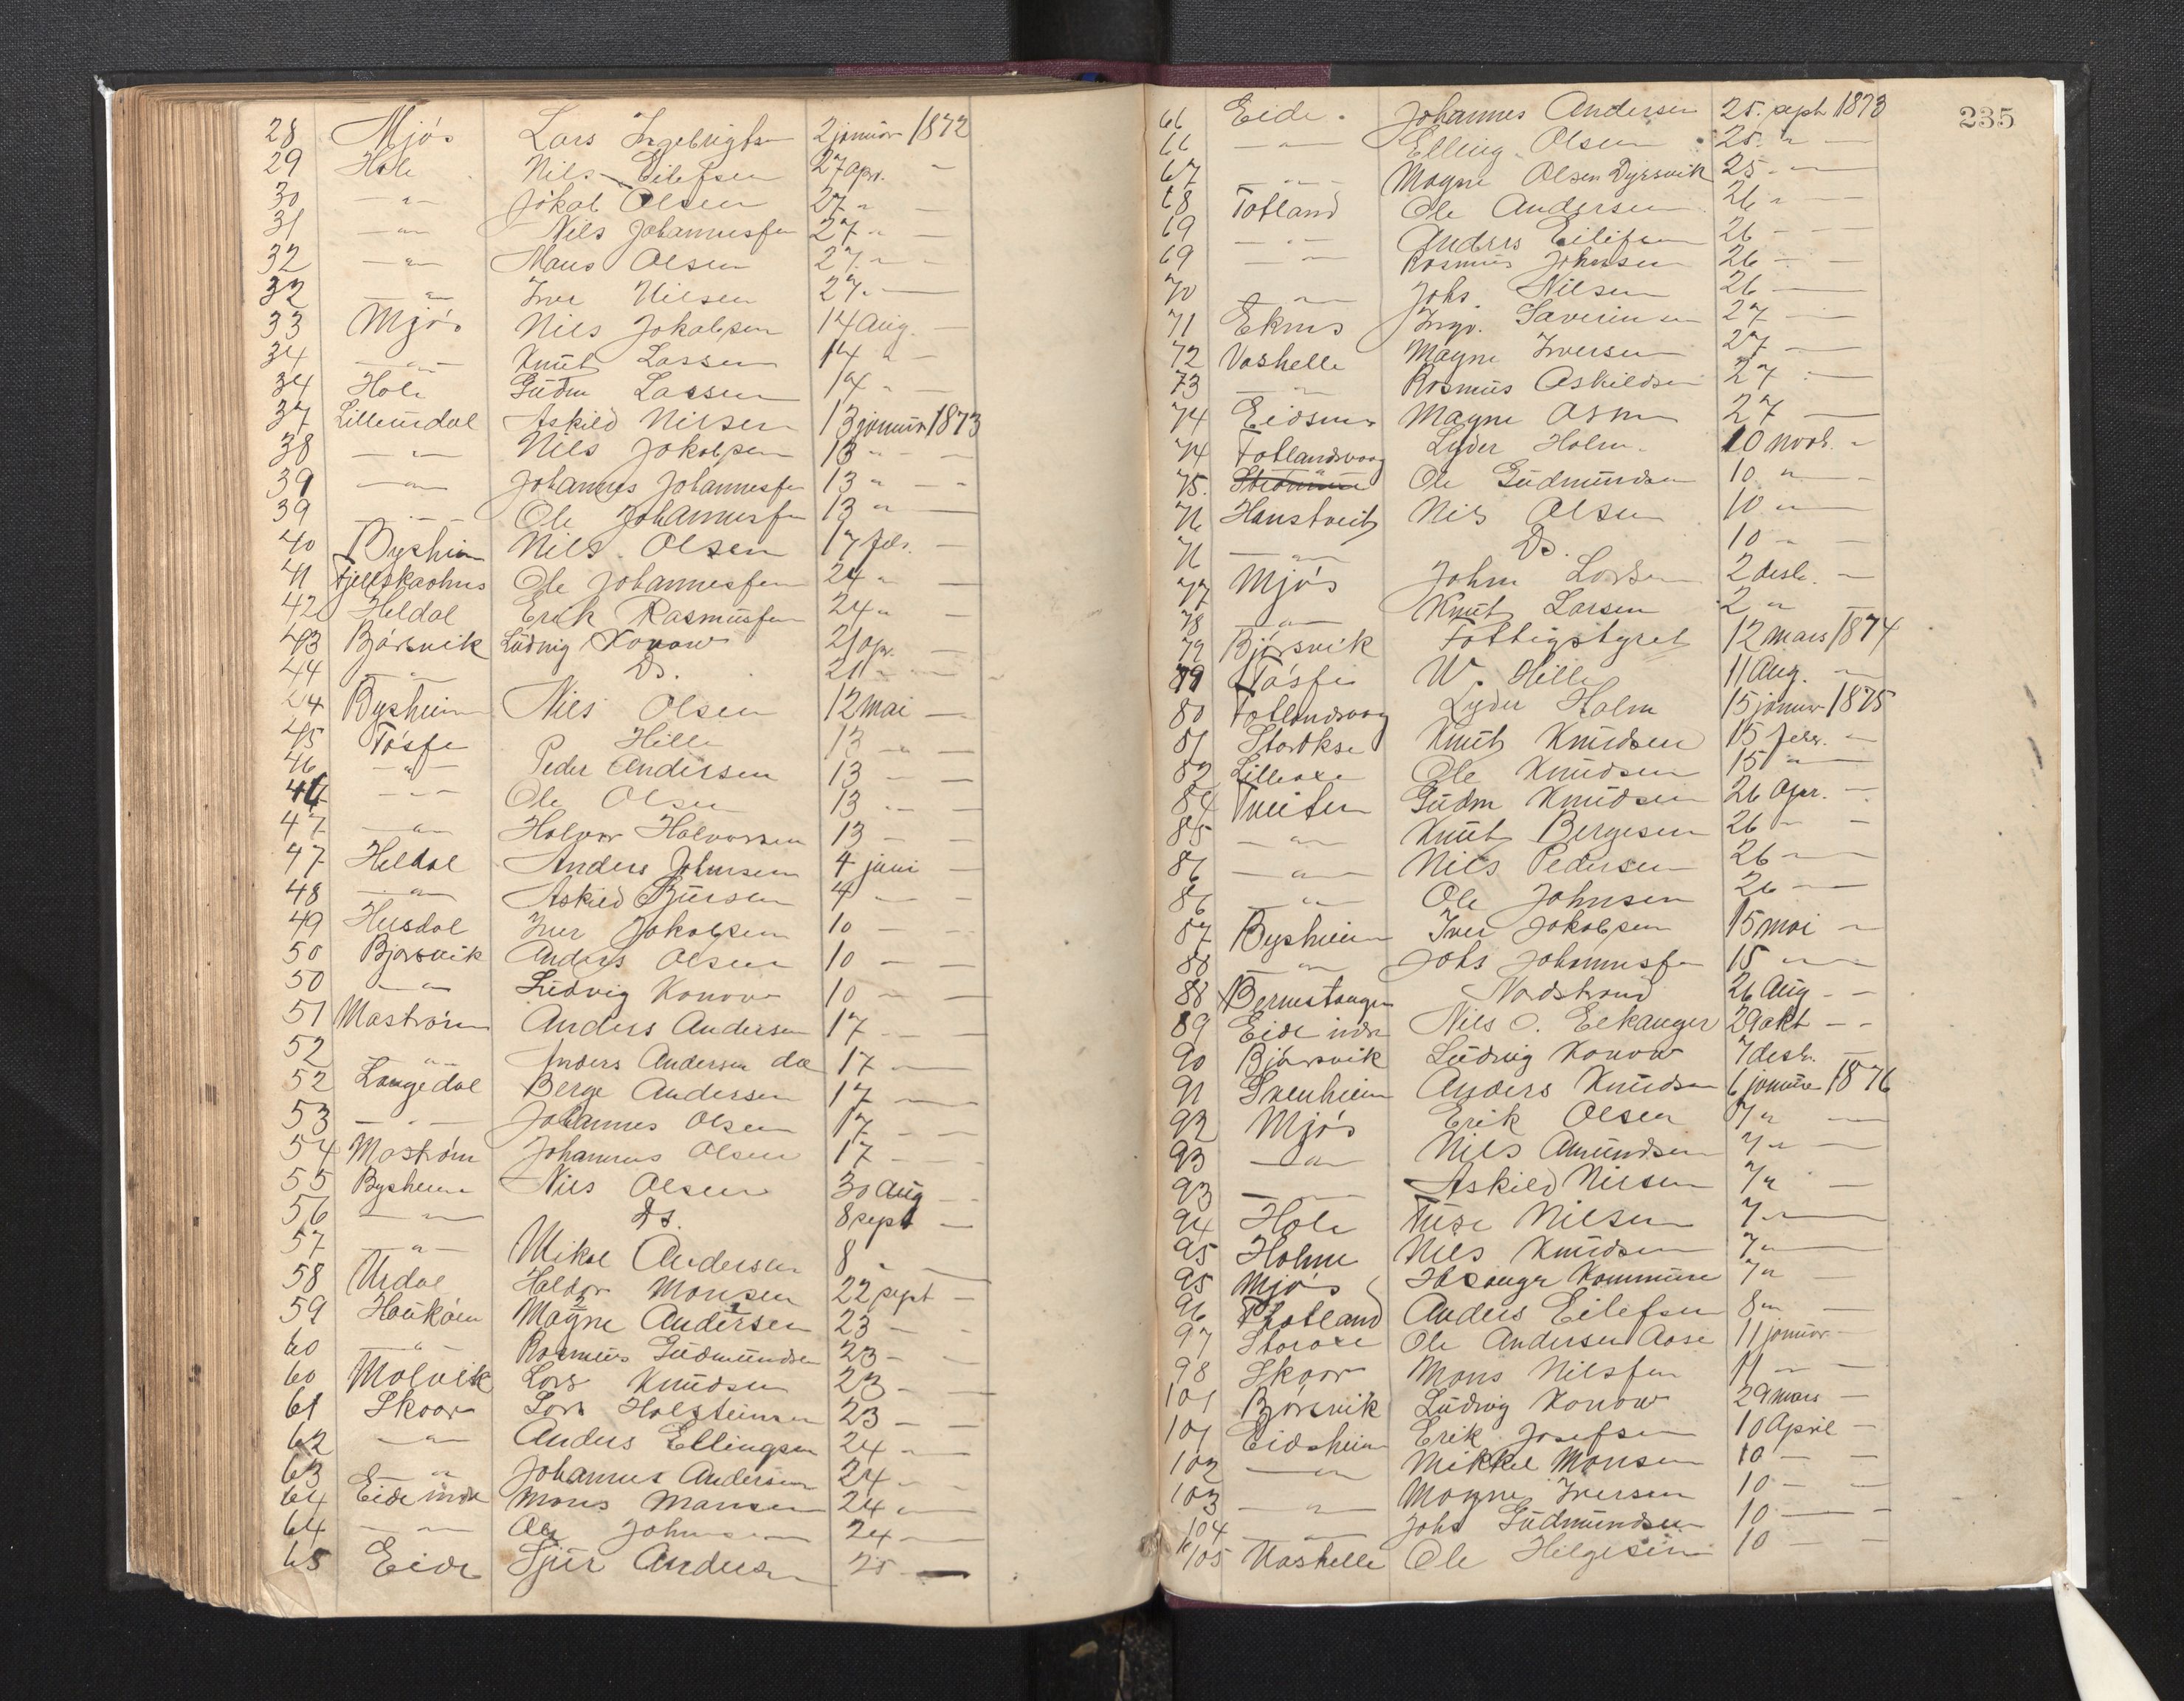 28 Mjós Lars Ingebrigtsn 2 januar 1872
29 Hole Nils Eilefsen 27 apr. —
30 —"— Jokab Olsen 27 " —
31 —"— Nils Johannesfn 27 " —
32 —"— Mans Olsen 27 " —
32 —"— Iver Nilsen 27 " —
33 Mjós Nils Jokabsen 14 Aug. —
34 —"— Knut Lassen 14 " —
34 Hole Gudm Lassen 14 " —
37 Lilleurdal Askild Nilsen 13 januar 1873
38 —"— Nils Jokobsen 13 " —
39 —"— Johannes Johannesfn 13 " —
39 —"— Ole Johannesfn 13 " —
40 Bysheim Nils Olsen 17 febr. —
41 Fjellskaalnes Ole Johannesfen 24 " —
42 Heldal Erik Rasmusfen 24 " —
43 Bjórsvik Ludvig Konow 21 apr. —
44 —"— Ds. 21 " —
44 Bysheim Nils Olsen 12 Mai —
45 Tósse Hille 13 " —
46 —"— Peder Andersen 13 — —
46 —"— Ole Olsen 13 " —
47 —"— Halvor Halvorsen 13 — —
47 Heldal Anders Johnsen 4 juni —
48 —"— Askild Sjursen 4 — —
49 Husdal Iver Jakobsen 10 — —
50 Bjorsvik Anders Olsen 10 — —
50 —"— Ludvig Konow 10 — —
51 Mastróm Anders Andersen 17 — —
52 —"— Anders Andersen da 17 — —
52 Langedal Berge Andersen 17 — —
53 —"— Johannes Olsen 17 — —
54 Mastróm Johannes Olsen 17 — —
55 Bysheim Nils Olsen 30 Aug —
56 —"— Ds. 8 sept —
57 —"— Mikal Andersen 8 " —
58 Urdal Haldor Monsen 22 sept —
59 Haukóen Magne Andersen 23 — —
60 —"— Rasmus Gudmundsen 23 — —
60 Molvik Lars Knudsen 23 — —
61 Skaar Lars Holsteinsen 23 — —
62 —"— Anders Ellingsen 24 " —
63 —"— Johannes Andersen 24 " —
64 Eide indre Mons Mansen 24 " —
64 —"— Ole Johnsen 24 —
65 Eide Sjur Andersn 25 —
235
66 Eide Johannes Andersen 25. sept 1873
66 —"— Elling Olsen 25. " —
67 —"— Magne Olsen Dyrsvik 25 " —
68 Totland Ole Andersen 26 " —
69 —"— Anders Eilifsen 26 — —
69 —"— Rasmus Johnsen 26 — —
70 —"— Johs Nilsen 26 —
71 Eknes Ingv. Saverinsen 27 —
72 Vashelle Magne Iversen 27 —
73 —"— Rasmus Askildsen 27 —
74 Eidsnes Magne Asm 27 —
74 Totlandsvaag Lyder Holm 10 novb. "
75. Ole Gudmundsen 10 " —
76 Hanstveit Nils Olsen 10 " —
76 —"— Ds. 10 " —
77 Mjós John Larsen 2 desb. —
78 —"— Knut Larsen 2 " —
79 Bjórsvik Fattigstyret 12 mars 1874
79 Tósse W. Hille 11 Aug. —
80 Totlandsvaag Lyder Holm 15 januar 1875
81 Storokse Knut Knudsen 15 febr. —
82 Lilleoxe Ole Knudsen 15 " —
84 Tveiten Gudm Knudsen 26 Apr. —
85 —"— Knut Bergesen 26 " —
86 —"— Nils Pedersen 26 —
86 —"— Ole Johnsen 26 —
87 Bysheim Iver Jokobsen 15 mai —
88 —"— Johs Johannesfn 15 " —
88 Bernestangen Nordstrand 26 Aug —
89 Eide indre Nils O. Eekanger 29 okt —
90 Bjórsvik Ludvig Konow 7 desb. —
91 Svenheim Anders Knudsen 6 januar 1876
92 Mjós Erik Olsen 7 " —
93 —"— Nils Amundsen 7 " —
93 —"— Askild Nilsen 7 " —
94 Hole Ture Nilsen 7 " —
95 Holme Nils Knudsen 7 " —
95 Mjós Hosanger Kommune 7 " —
96 Totland Anders Eilefsen 8 " —
97 Storoxe Ole Andersen Aase 11 januar —
98 Skaar Mons Nilsfen 11 " —
101 Bjórsvik Ludvig Konow 29 mars —
101 Eidsheim Erik Josefsen 10 April —
102 —"— Mikkel Monsen 10 — —
103 —"— Magne Iversen 10 — —
104 —"— Johs Gudmundsen 10 — —
105 Vashelle Ole Helgesen 10 — —